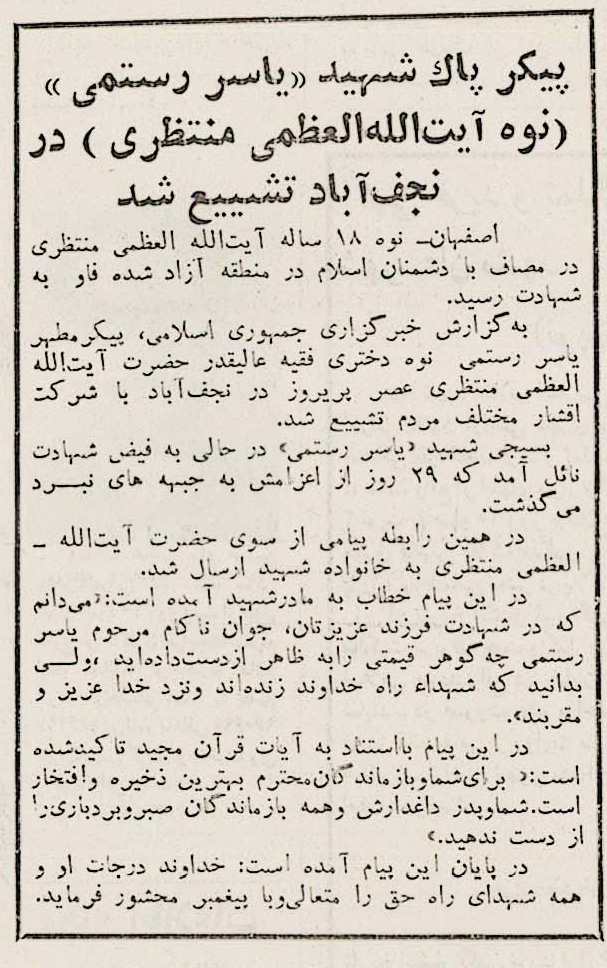 پیکر پاك شهید «یاسر رستمی»
(نوه آیت‌الله‌العظمی منتظری) در
نجف‌آباد تشییع شد
اصفهان– نوه ۱۸ ساله آیت‌الله العظمی منتظری
در مصاف با دشمنان اسلام در منطقه آزاد شده فاو به
شهادت رسید.
به‌گزارش خبرگزاری جمهوری اسلامی، پیکرمطهر
یاسر رستمی نوه دختری فقیه عالیقدر حضرت آیت‌الله
العظمی منتظری عصر پریروز در نجف‌آباد با شرکت
اقشار مختلف مردم تشییع شد.
بسیجی شهید «یاسر رستمی» در حالی به فیض شهادت
نائل آمد که ۲۹ روز از اعزامش به جبهه های نبرد
می‌گذشت.
در همین رابطه پیامی از سوی حضرت آیت‌الله –
العظمی منتظری به خانواده شهید ارسال شد.
در این پیام خطاب به مادرشهید آمده است:«می‌دانم
که در شهادت فرزند عزیزتان، جوان ناکام مرحوم یاسر
رستمی چه‌گوهر قیمتی رابه ظاهر ازدست‌داده‌اید ،ولی
بدانید که شهداء راه خداوند زنده‌اند ونزد خدا عزیز و
مقربند».
در این پیام بااستناد به آیات قرآن مجید تاکیدشده
است:« برای‌شماوبازماندگان‌محترم بهترین ذخیره وافتخار
است.شماوپدر داغدارش وهمه بازماندگان صبروبردباری‌را
از دست ندهید.»
در پایان این پیام آمده است: خداوند درجات او و
همه شهدای راه حق را متعالی‌وبا پیغمبر محشور فرماید.